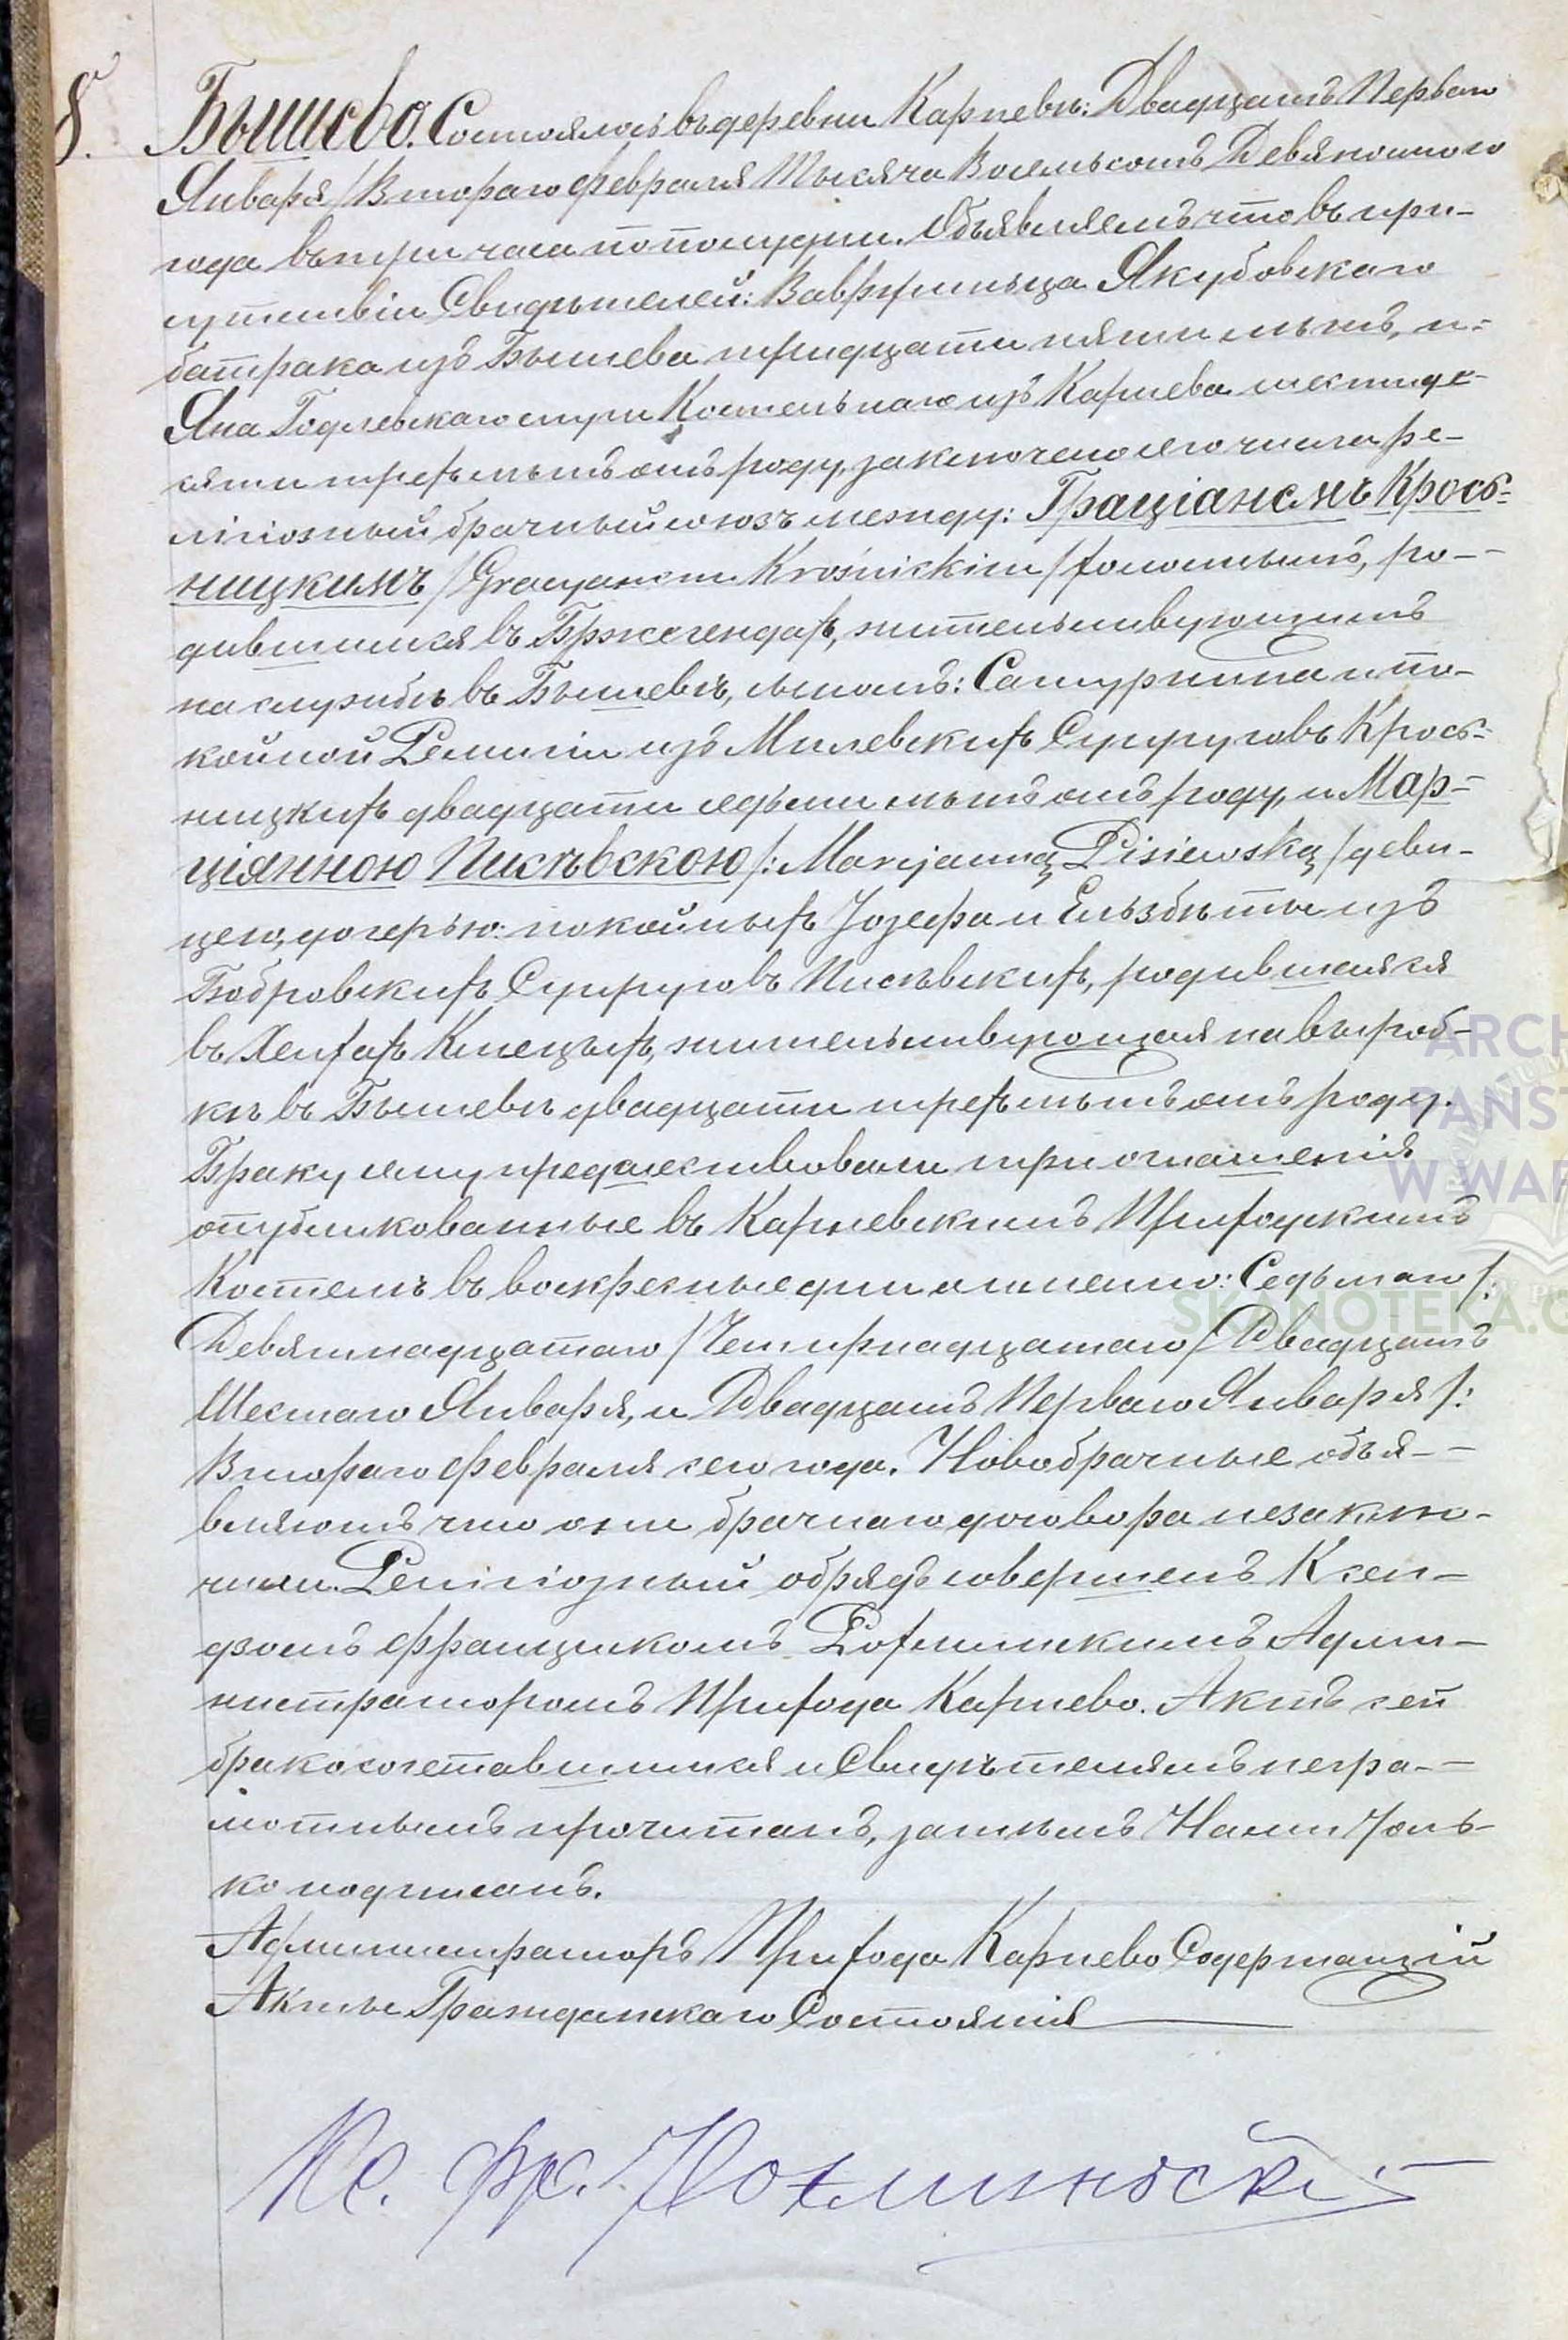 8. Бышево. Состоялось въ деревни Карневѣ: Двадцать Перваго
Января / Втораго Февраля Тысяча Восемьсотъ Девяностого
года въ три часа по полудни. Объявляемъ что въ при-
сутствіи Свидѣтелей: Вавржиньца Якубовскаго
батрака изъ Бышева тридцати пяти лѣтъ, и-
Яна Годлевскаго слуги Костельнаго изъ Карнева шестиде-
сяти трехъ лѣтъ отъ роду, заключено сего числа ре-
лигіозный брачный союзъ между: Граціанемъ Крось-
ницкимъ / Gracyanem Krośnickim / холостымъ, ро-
дившимся въ Бржегендахъ, жительствующимъ
на службѣ въ Бышевѣ, сыномъ: Сатурнина и по-
койной Ремигіи изъ Милевскихъ Супруговъ Крось-
ницкихъ двадцати седьми лѣтъ отъ роду, и Мар-
ціянною Писѣвскою /: Marcjanną Pisiewską / деви-
цею, дочерью: покойныхъ Іозефа и Ельзбѣты изъ
Бобровскихъ Супруговъ Писѣвскихъ, родившаяся
въ Хелхахъ Кмецыхъ, жительствующая на выроб-
кѣ въ Бышевѣ двадцати трехъ лѣтъ отъ роду.
Браку сему предшествовали три оглашенія
опубликованные въ Карневскимъ Приходскимъ
Костелѣ въ воскресные дни а именно: Седьмаго /:
Девятнадцатаго / Четырнадцатаго / Двадцать
Шестаго Января, и Двадцать Перваго Января /:
Втораго Февраля сего года. Новобрачные объя-
вляютъ что они брачнаго договора незаклю-
чили. Религіозный обрядъ совершенъ Ксен-
дзомъ Францишкомъ Рохминскимъ Адми-
нистраторомъ Прихода Карнево. Актъ сей
бракосочетавшимся и Свидѣтелямъ негра-
мотнымъ прочитанъ, затѣмъ Нами толь-
ко подписанъ.
Администраторъ Прихода Карнево Содержащій
Акты Гражданскаго Состоянія
Кс. Фр.
ARCH
PAŃST
W WAR
SKANOTEKA.G